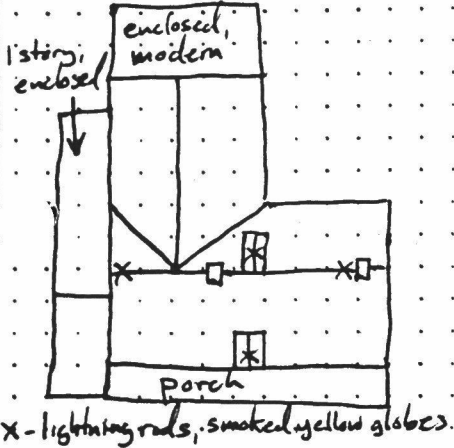 enclosed,
modern
1 story,
enclosed
porch
x - lightning rods, smoked yellow globes.